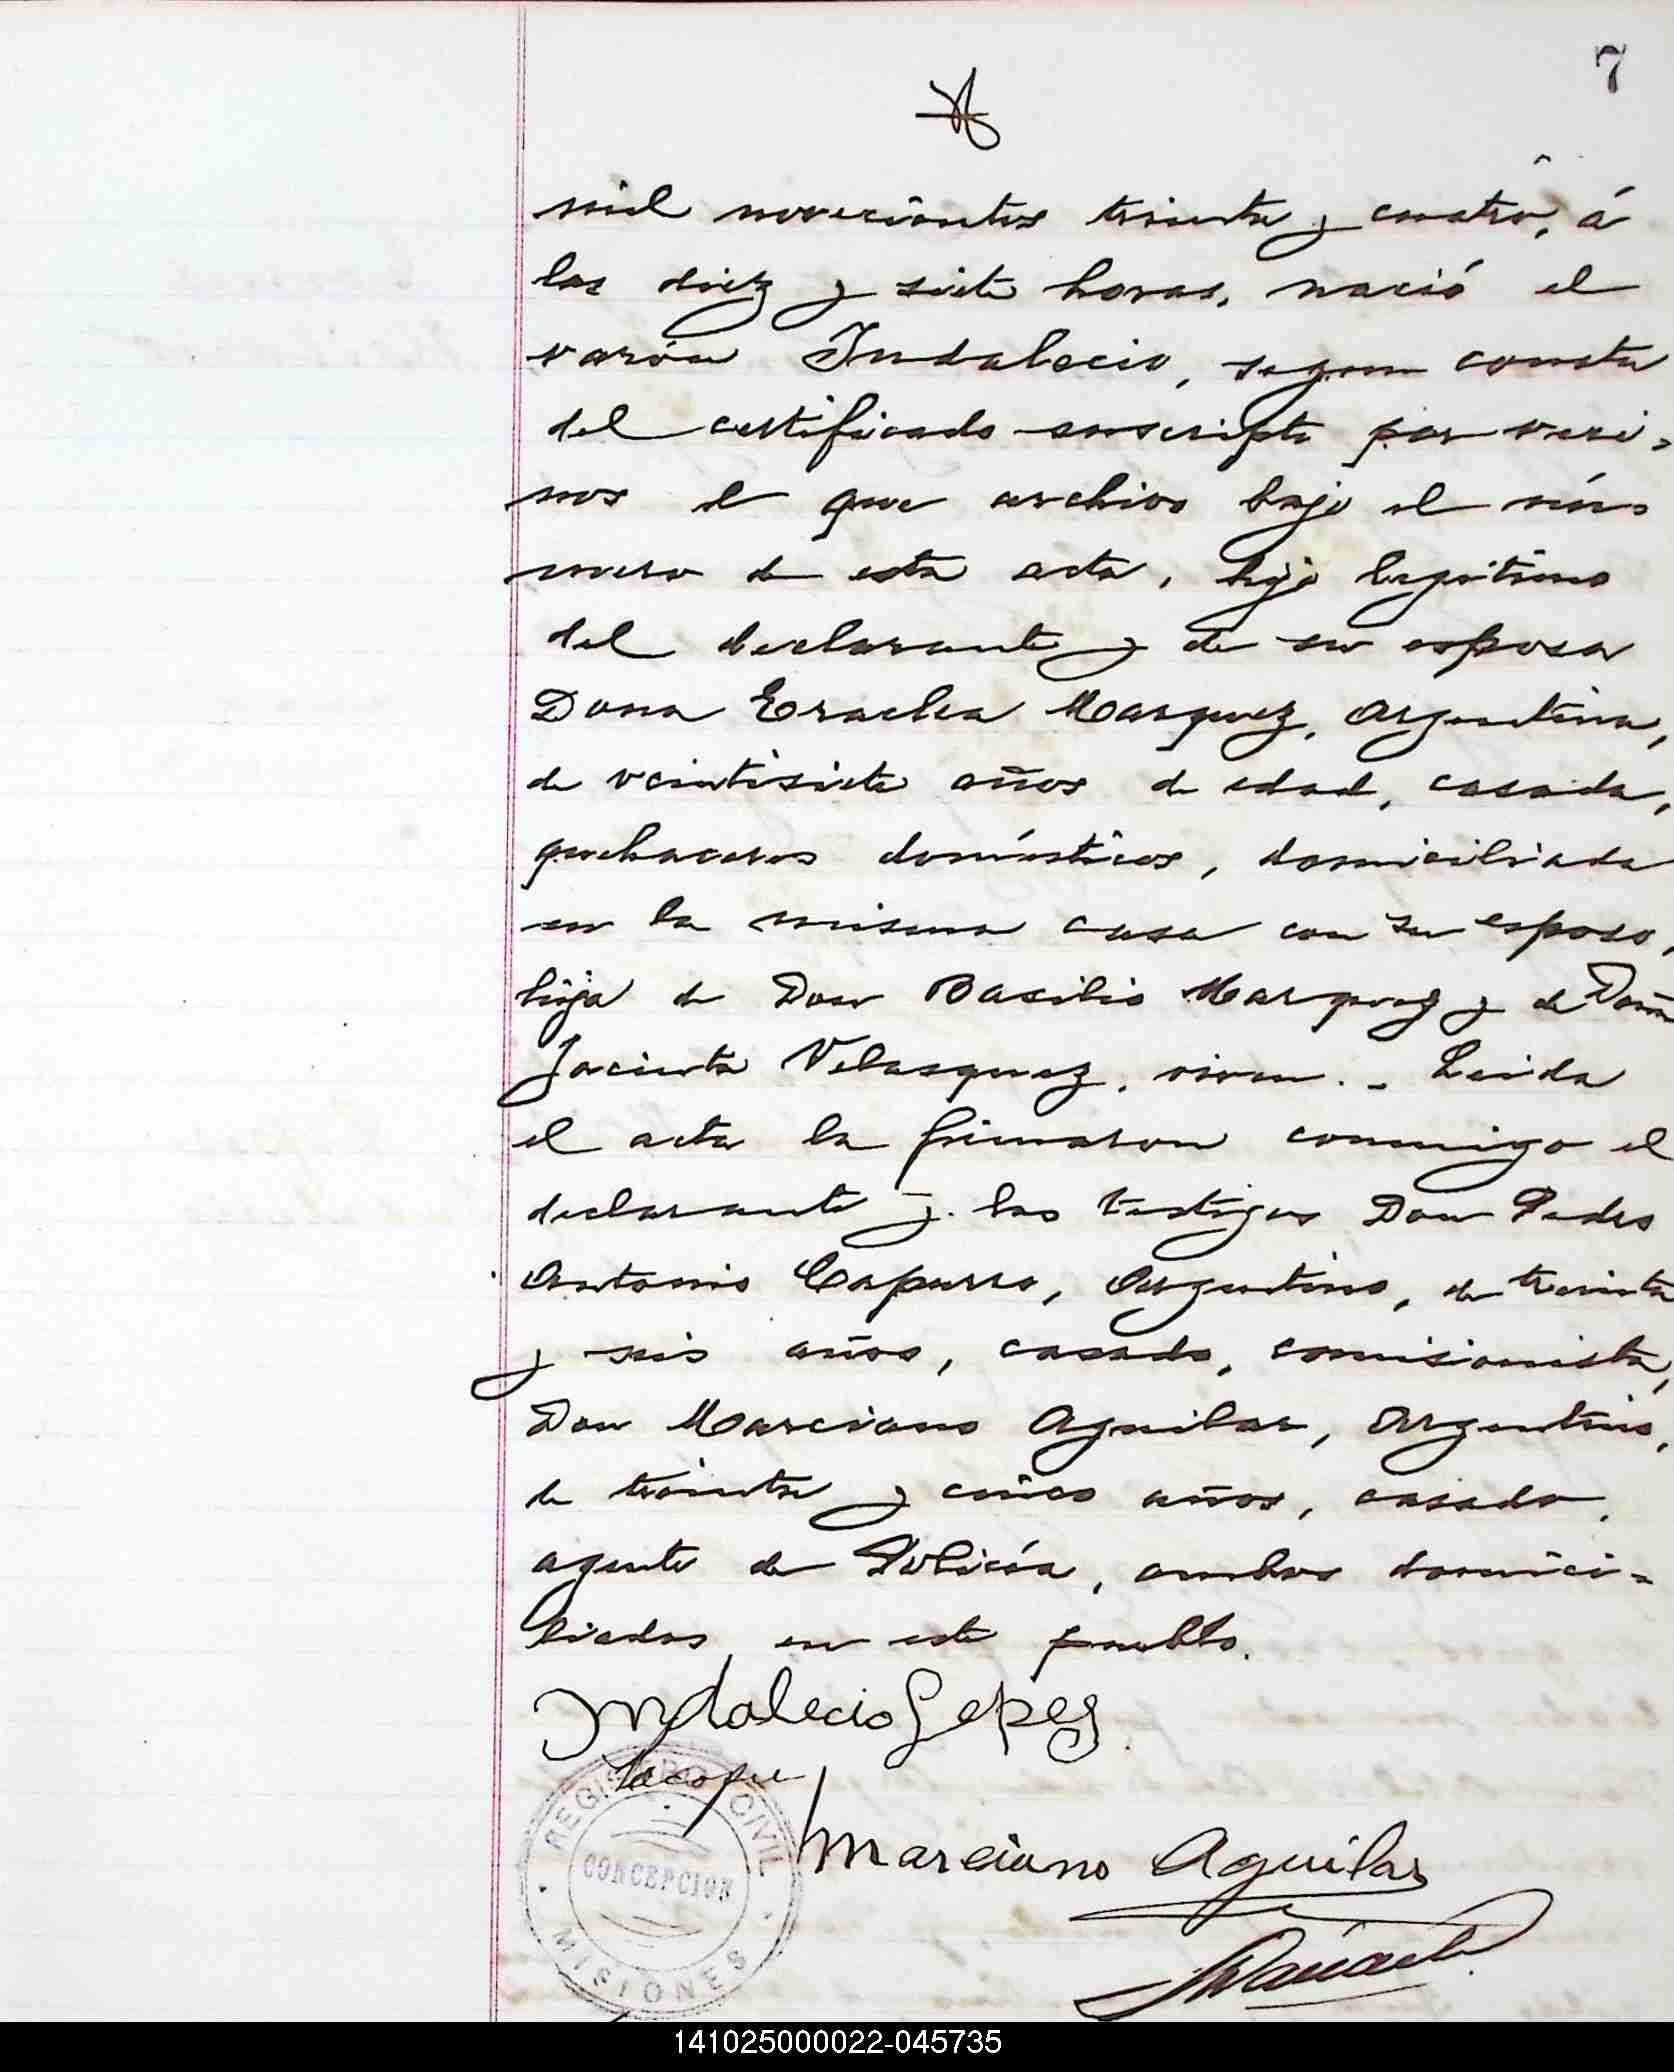 7
mil novecientos treinta y cuatro, á
las diez y siete horas, nació el
varón Indalecio, segun consta
del certificado suscripto por veci-
nos el que archivo bajo el nú-
mero de esta acta, hijo legitimo
del declarante y de su esposa
Dona Eraclea Marquez, Argentina,
de veintisiete años de edad, casada,
quehaceres domésticos, domiciliada
en la misma casa con su esposo,
hija de Don Basilio Marquez y de Doña
Jacinta Velasquez, viven. - Leida
el acta la firmaron conmigo el
declarante y los testigos Don Pedro
Antonio Capurro, Argentino, de treinta
y seis años, casado, comisionista,
Don Marciano Aguilar, Argentino,
de treinta y cinco años, casado,
agente de Policía, ambos domici-
liados en este pueblo.
Indalecio Lepes
REGISTRO CIVIL
CONCEPCION
MISIONES
Marciano Aguilar
141025000022-045735